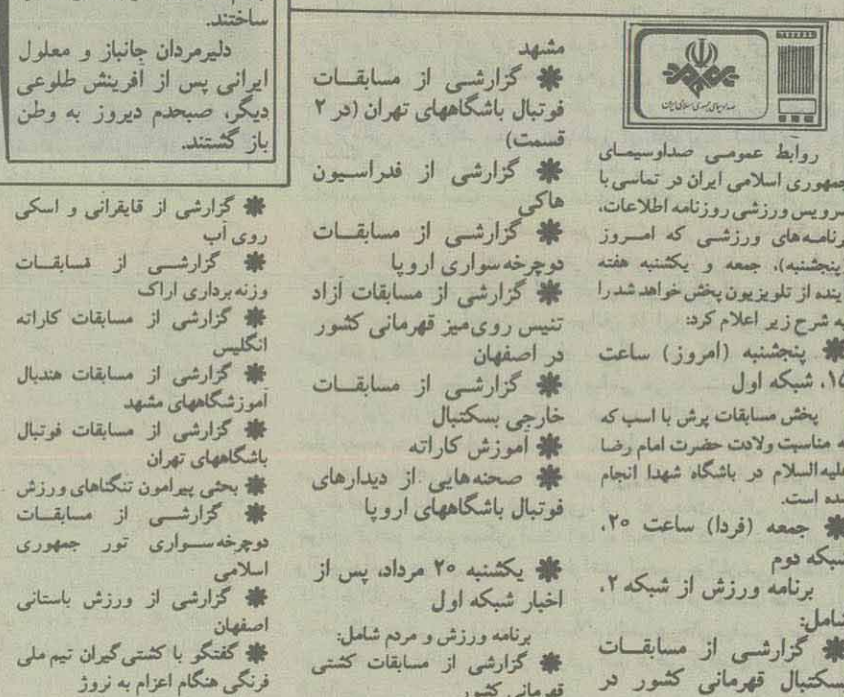 صدا و سیمای جمهوری اسلامی ایران
روابط عمومی صداوسیمای
جمهوری اسلامی ایران در تماسی با
سرویس ورزشی روزنامه اطلاعات،
برنامه‌های ورزشی که امروز
(پنجشنبه)، جمعه و یکشنبه هفته
آینده از تلویزیون پخش خواهد شد را
به شرح زیر اعلام کرد:
✽ پنجشنبه (امروز) ساعت
۱۵، شبکه اول
پخش مسابقات پرش با اسب که
به مناسبت ولادت حضرت امام رضا
علیه‌السلام در باشگاه شهدا انجام
شده است.
✽ جمعه (فردا) ساعت ۲۰،
شبکه دوم
برنامه ورزش از شبکه ۲،
شامل:
✽ گزارشی از مسابقات
بسکتبال قهرمانی کشور در
مشهد
✽ گزارشی از مسابقات
فوتبال باشگاههای تهران (در ۲
قسمت)
✽ گزارشی از فدراسیون
هاکی
✽ گزارشی از مسابقات
دوچرخه‌سواری اروپا
✽ گزارشی از مسابقات آزاد
تنیس روی‌میز قهرمانی کشور
در اصفهان
✽ گزارشی از مسابقات
خارجی بسکتبال
✽ آموزش کاراته
✽ صحنه‌هایی از دیدارهای
فوتبال باشگاههای اروپا
✽ یکشنبه ۲۰ مرداد، پس از
اخبار شبکه اول
برنامه ورزش و مردم شامل:
✽ گزارشی از مسابقات کشتی
قهرمانی کشور
ساختند.
دلیرمردان جانباز و معلول
ایرانی پس از آفرینش طلوعی
دیگر، صبحدم دیروز به وطن
باز گشتند.
✽ گزارشی از قایقرانی و اسکی
روی آب
✽ گزارشی از مسابقات
وزنه‌برداری اراک
✽ گزارشی از مسابقات کاراته
انگلیس
✽ گزارشی از مسابقات هندبال
آموزشگاههای مشهد
✽ گزارشی از مسابقات فوتبال
باشگاههای تهران
✽ بحثی پیرامون تنگناهای ورزش
✽ گزارشی از مسابقات
دوچرخه‌سواری تور جمهوری
اسلامی
✽ گزارشی از ورزش باستانی
اصفهان
✽ گفتگو با کشتی‌گیران تیم ملی
فرنگی هنگام اعزام به نروژ